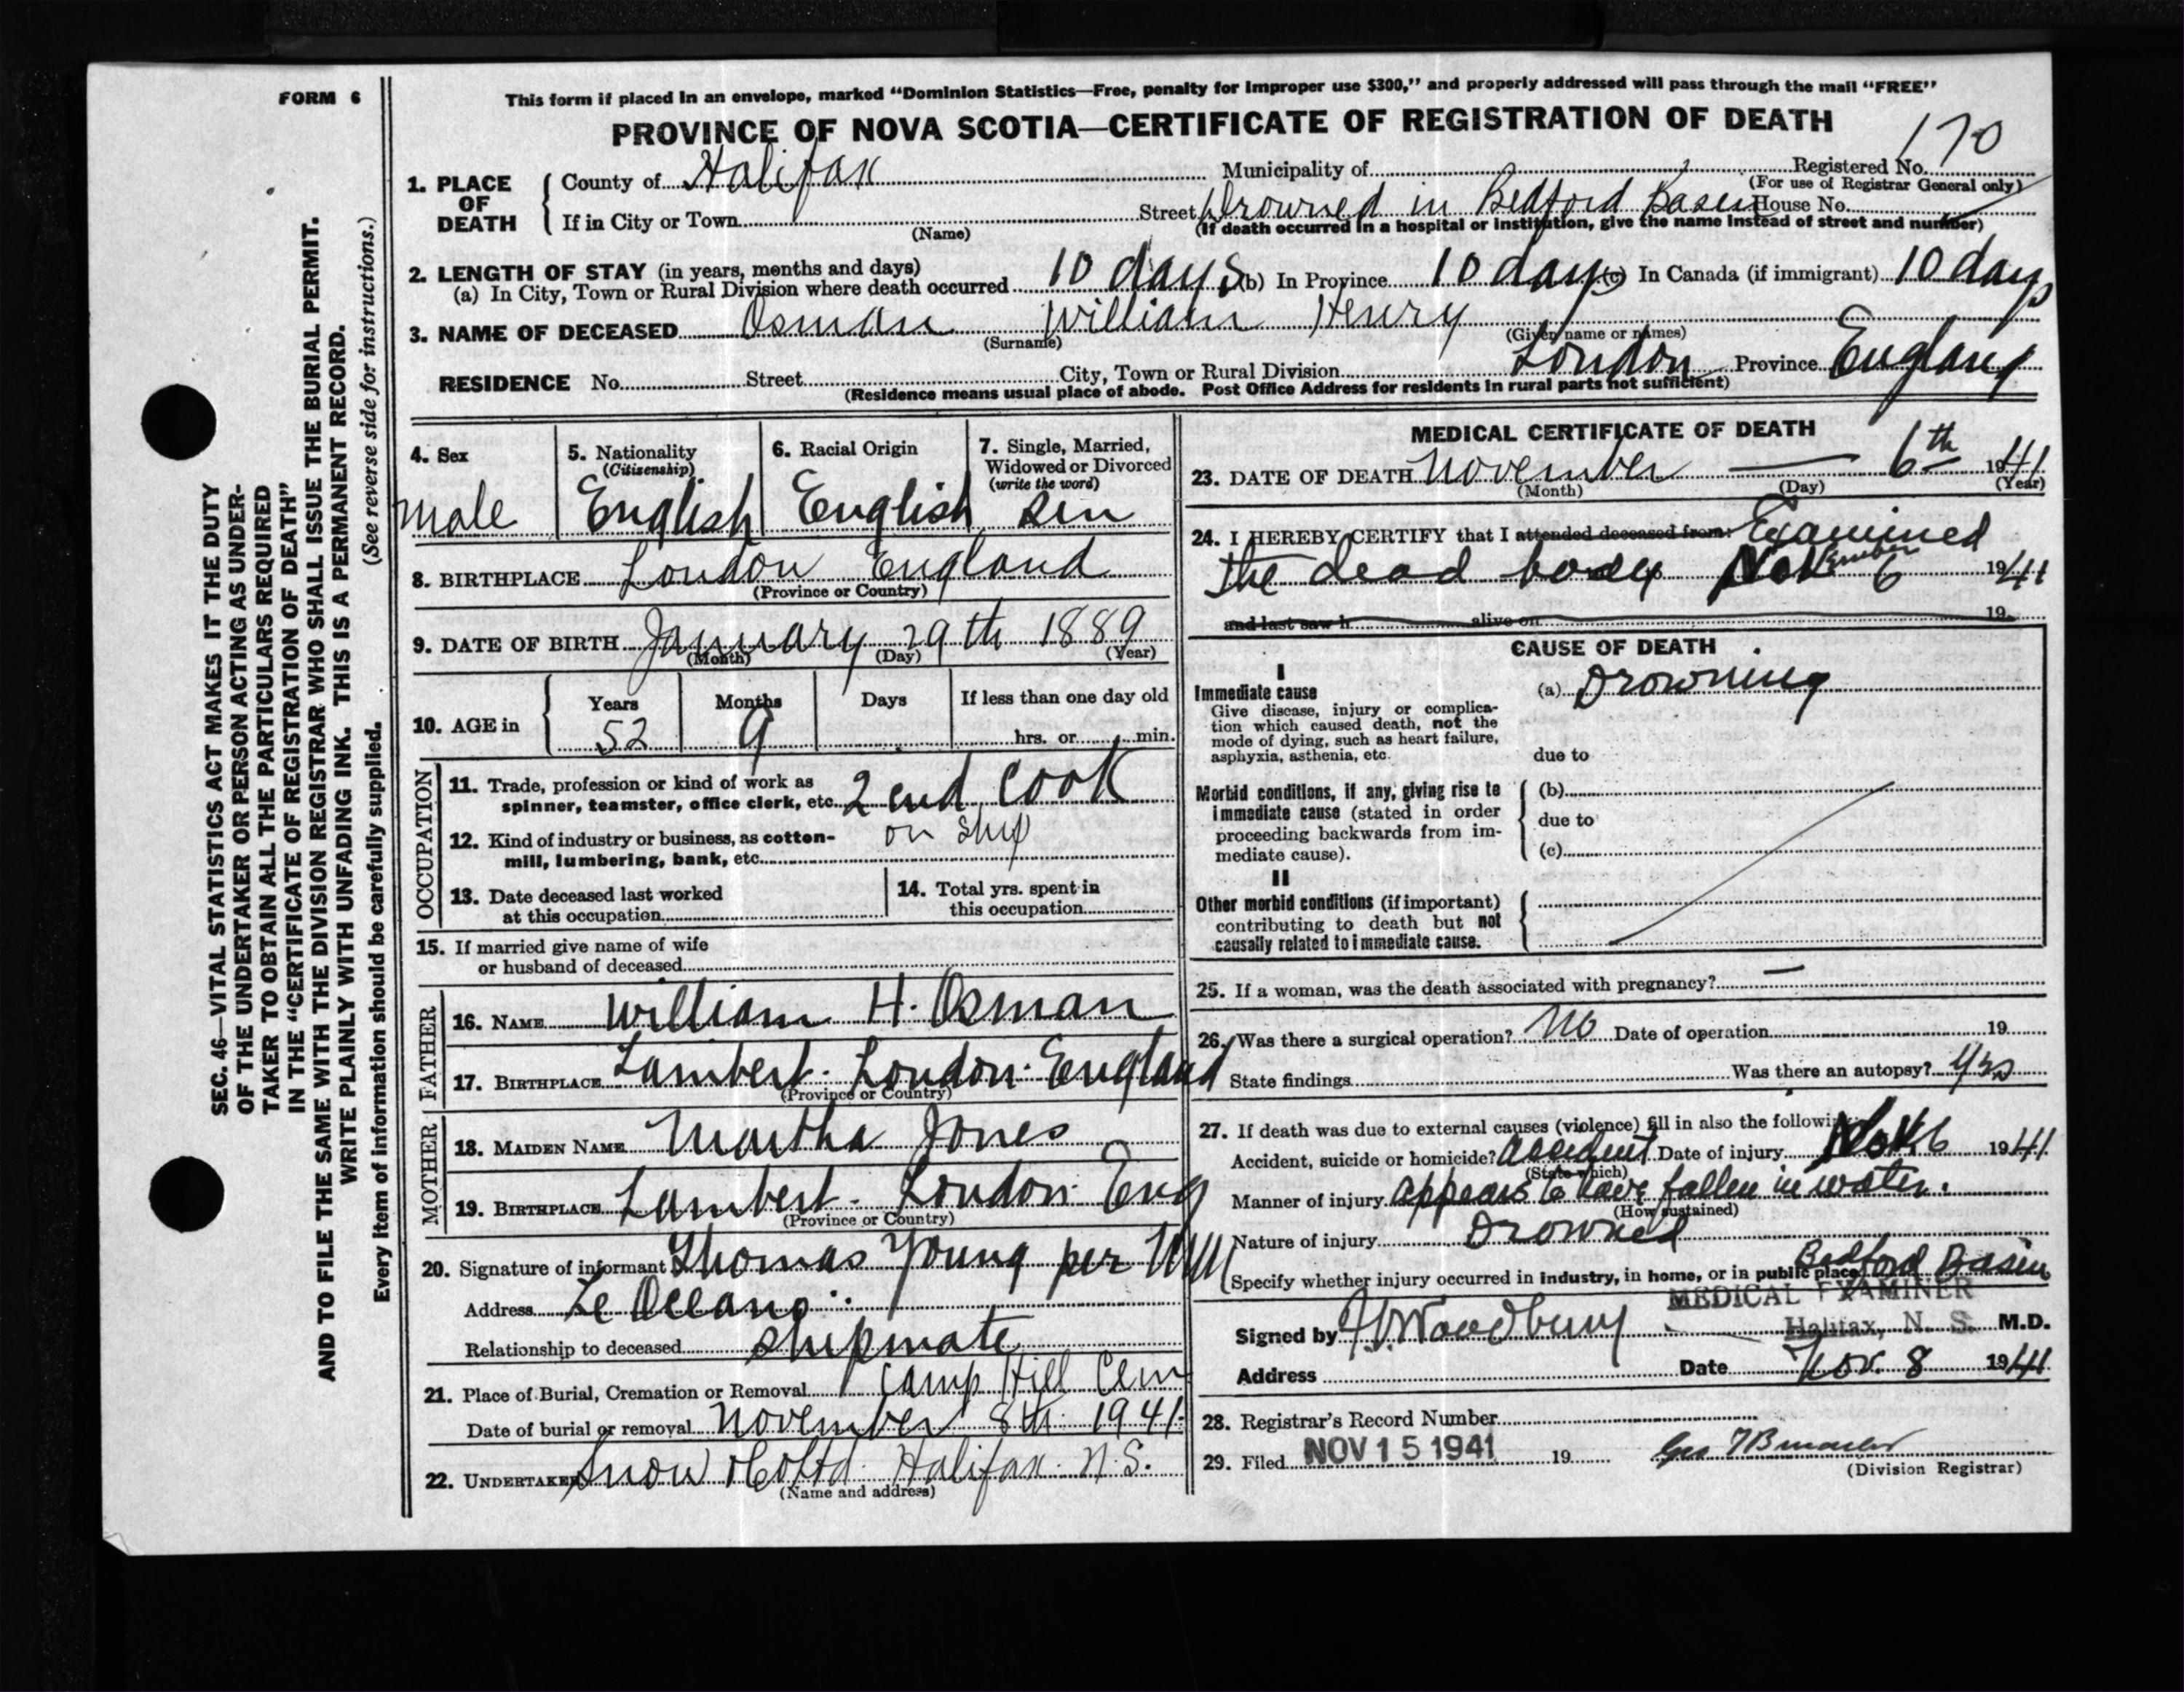 FORM 6
This form if placed in an envelope, marked "Dominion Statistics—Free, penalty for improper use $300," and properly addressed will pass through the mail "FREE"
PROVINCE OF NOVA SCOTIA—CERTIFICATE OF REGISTRATION OF DEATH
170
1. PLACE OF DEATH
County of Halifax Municipality of Registered No.
(For use of Registrar General only)
If in City or Town Street Drowned in Bedford Basin House No.
(Name) (If death occurred in a hospital or institution, give the name instead of street and number)
2. LENGTH OF STAY (in years, months and days)
(a) In City, Town or Rural Division where death occurred 10 days (b) In Province 10 days (c) In Canada (if immigrant) 10 days
3. NAME OF DECEASED Osman William Henry
(Surname) (Given name or names)
RESIDENCE No. Street City, Town or Rural Division London Province England
(Residence means usual place of abode. Post Office Address for residents in rural parts not sufficient)
4. Sex male
5. Nationality (Citizenship) English
6. Racial Origin English
7. Single, Married, Widowed or Divorced (write the word) Sin
8. BIRTHPLACE London England
(Province or Country)
9. DATE OF BIRTH January 29th 1889
(Month) (Day) (Year)
10. AGE in Years Months Days If less than one day old
52 9 hrs. or min.
OCCUPATION
11. Trade, profession or kind of work as
spinner, teamster, office clerk, etc. 2end Cook
12. Kind of industry or business, as cotton- on ship
mill, lumbering, bank, etc.
13. Date deceased last worked
at this occupation
14. Total yrs. spent in
this occupation
15. If married give name of wife
or husband of deceased
FATHER
16. NAME William H. Osman
17. BIRTHPLACE Lambert. London. England
(Province or Country)
MOTHER
18. MAIDEN NAME Martha Jones
19. BIRTHPLACE Lambert. London. Eng
(Province or Country)
20. Signature of informant Thomas Young per
Address
Relationship to deceased Shipmate
21. Place of Burial, Cremation or Removal Camp Hill Cem
Date of burial or removal November 8th 1941
22. UNDERTAKER Snow & Co Ltd. Halifax. N.S.
(Name and address)
MEDICAL CERTIFICATE OF DEATH
23. DATE OF DEATH November — 6th 1941
(Month) (Day) (Year)
24. I HEREBY CERTIFY that I attended deceased from: Examined
the dead body November 6 1941
and last saw h alive on 19
CAUSE OF DEATH
I
Immediate cause
Give disease, injury or complica-
tion which caused death, not the
mode of dying, such as heart failure,
asphyxia, asthenia, etc.
(a) Drowning
due to
Morbid conditions, if any, giving rise to
immediate cause (stated in order
proceeding backwards from im-
mediate cause).
(b)
due to
(c)
II
Other morbid conditions (if important)
contributing to death but not
causally related to immediate cause.
25. If a woman, was the death associated with pregnancy? —
26. Was there a surgical operation? No Date of operation 19
State findings Was there an autopsy? Yes
27. If death was due to external causes (violence) fill in also the following:
Accident, suicide or homicide? Accident Date of injury Nov 6 1941
(State which)
Manner of injury appears to have fallen in water.
(How sustained)
Nature of injury Drowned
Specify whether injury occurred in industry, in home, or in public place Bedford Basin
MEDICAL EXAMINER
Signed by Woodbury Halifax, N. S. M.D.
Address Date Nov. 8 1941
28. Registrar's Record Number
29. Filed NOV 15 1941 19
(Division Registrar)
SEC. 46—VITAL STATISTICS ACT MAKES IT THE DUTY
OF THE UNDERTAKER OR PERSON ACTING AS UNDER-
TAKER TO OBTAIN ALL THE PARTICULARS REQUIRED
IN THE "CERTIFICATE OF REGISTRATION OF DEATH"
AND TO FILE THE SAME WITH THE DIVISION REGISTRAR WHO SHALL ISSUE THE BURIAL PERMIT.
WRITE PLAINLY WITH UNFADING INK. THIS IS A PERMANENT RECORD.
Every item of information should be carefully supplied. (See reverse side for instructions.)